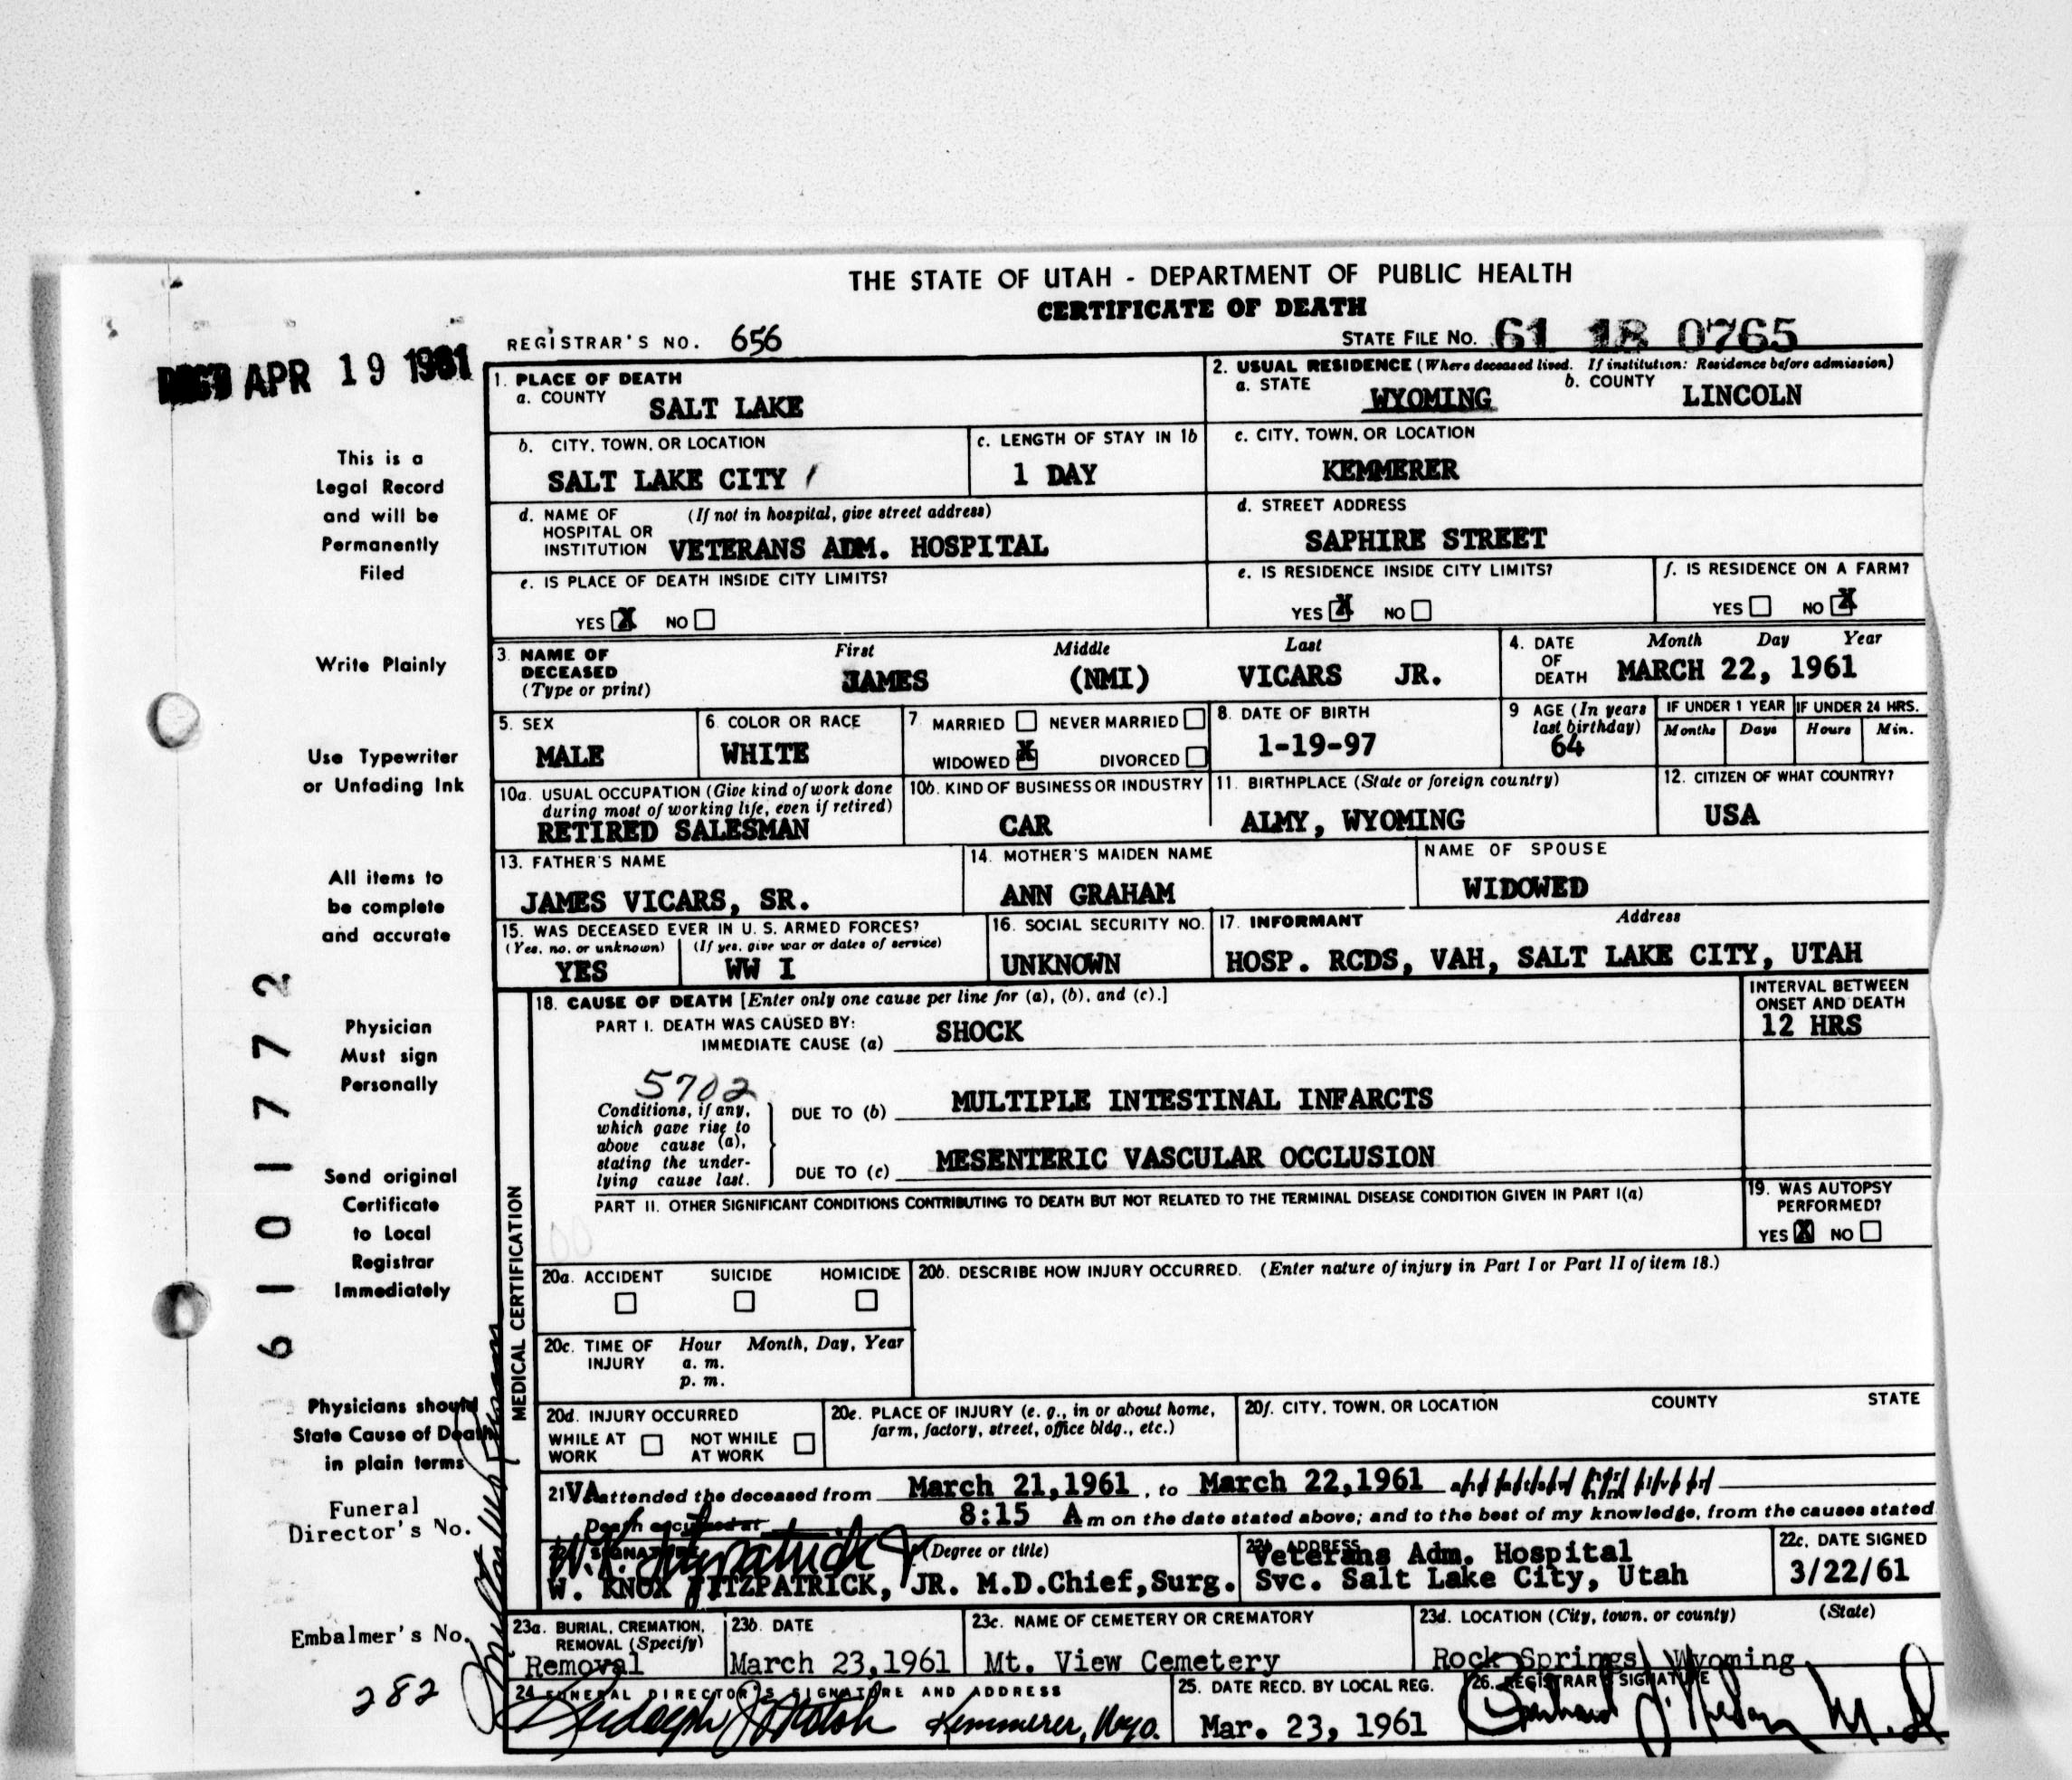 THE STATE OF UTAH - DEPARTMENT OF PUBLIC HEALTH
CERTIFICATE OF DEATH
REGISTRAR'S NO. 656
STATE FILE NO. 61 18 0765
REC'D APR 19 1961
This is a
Legal Record
and will be
Permanently
Filed
Write Plainly
Use Typewriter
or Unfading Ink
All items to
be complete
and accurate
Physician
Must sign
Personally
Send original
Certificate
to Local
Registrar
Immediately
Physicians should
State Cause of Death
in plain terms
Funeral
Director's No.
Embalmer's No.
282
6101772
1. PLACE OF DEATH
a. COUNTY SALT LAKE
2. USUAL RESIDENCE (Where deceased lived. If institution: Residence before admission)
a. STATE WYOMING b. COUNTY LINCOLN
b. CITY, TOWN, OR LOCATION
SALT LAKE CITY /
c. LENGTH OF STAY IN 1b
1 DAY
c. CITY, TOWN, OR LOCATION
KEMMERER
d. NAME OF (If not in hospital, give street address)
HOSPITAL OR
INSTITUTION VETERANS ADM. HOSPITAL
d. STREET ADDRESS
SAPHIRE STREET
e. IS PLACE OF DEATH INSIDE CITY LIMITS?
YES X NO
e. IS RESIDENCE INSIDE CITY LIMITS?
YES X NO
f. IS RESIDENCE ON A FARM?
YES NO X
3. NAME OF DECEASED (Type or print)
First Middle Last
JAMES (NMI) VICARS JR.
4. DATE OF DEATH Month Day Year
MARCH 22, 1961
5. SEX
MALE
6. COLOR OR RACE
WHITE
7. MARRIED NEVER MARRIED
WIDOWED X DIVORCED
8. DATE OF BIRTH
1-19-97
9 AGE (In years last birthday)
64
IF UNDER 1 YEAR IF UNDER 24 HRS.
Months Days Hours Min.
10a. USUAL OCCUPATION (Give kind of work done
during most of working life, even if retired)
RETIRED SALESMAN
10b. KIND OF BUSINESS OR INDUSTRY
CAR
11. BIRTHPLACE (State or foreign country)
ALMY, WYOMING
12. CITIZEN OF WHAT COUNTRY?
USA
13. FATHER'S NAME
JAMES VICARS, SR.
14. MOTHER'S MAIDEN NAME
ANN GRAHAM
NAME OF SPOUSE
WIDOWED
15. WAS DECEASED EVER IN U. S. ARMED FORCES?
(Yes, no, or unknown) (If yes, give war or dates of service)
YES WW I
16. SOCIAL SECURITY NO.
UNKNOWN
17. INFORMANT Address
HOSP. RCDS, VAH, SALT LAKE CITY, UTAH
MEDICAL CERTIFICATION
18. CAUSE OF DEATH [Enter only one cause per line for (a), (b), and (c).]
INTERVAL BETWEEN
ONSET AND DEATH
PART I. DEATH WAS CAUSED BY:
IMMEDIATE CAUSE (a) SHOCK
12 HRS
5702
Conditions, if any,
which gave rise to
above cause (a),
stating the under-
lying cause last.
DUE TO (b) MULTIPLE INTESTINAL INFARCTS
DUE TO (c) MESENTERIC VASCULAR OCCLUSION
PART II. OTHER SIGNIFICANT CONDITIONS CONTRIBUTING TO DEATH BUT NOT RELATED TO THE TERMINAL DISEASE CONDITION GIVEN IN PART I(a)
19. WAS AUTOPSY
PERFORMED?
YES X NO
20a. ACCIDENT SUICIDE HOMICIDE
20b. DESCRIBE HOW INJURY OCCURRED. (Enter nature of injury in Part I or Part II of item 18.)
20c. TIME OF INJURY Hour Month, Day, Year
a. m.
p. m.
20d. INJURY OCCURRED
WHILE AT WORK NOT WHILE AT WORK
20e. PLACE OF INJURY (e. g., in or about home,
farm, factory, street, office bldg., etc.)
20f. CITY, TOWN, OR LOCATION COUNTY STATE
21 VA attended the deceased from March 21,1961, to March 22,1961
Death occurred at 8:15 A m on the date stated above; and to the best of my knowledge, from the causes stated
SIGNATURE (Degree or title)
W. K. Fitzpatrick Jr
W. KNOX FITZPATRICK, JR. M.D. Chief, Surg.
22b. ADDRESS
Veterans Adm. Hospital
Svc. Salt Lake City, Utah
22c. DATE SIGNED
3/22/61
23a. BURIAL, CREMATION,
REMOVAL (Specify)
Removal
23b. DATE
March 23,1961
23c. NAME OF CEMETERY OR CREMATORY
Mt. View Cemetery
23d. LOCATION (City, town, or county) (State)
Rock Springs, Wyoming
24 FUNERAL DIRECTOR'S SIGNATURE AND ADDRESS
Kemmerer, Wyo.
25. DATE RECD. BY LOCAL REG.
Mar. 23, 1961
26. REGISTRAR'S SIGNATURE